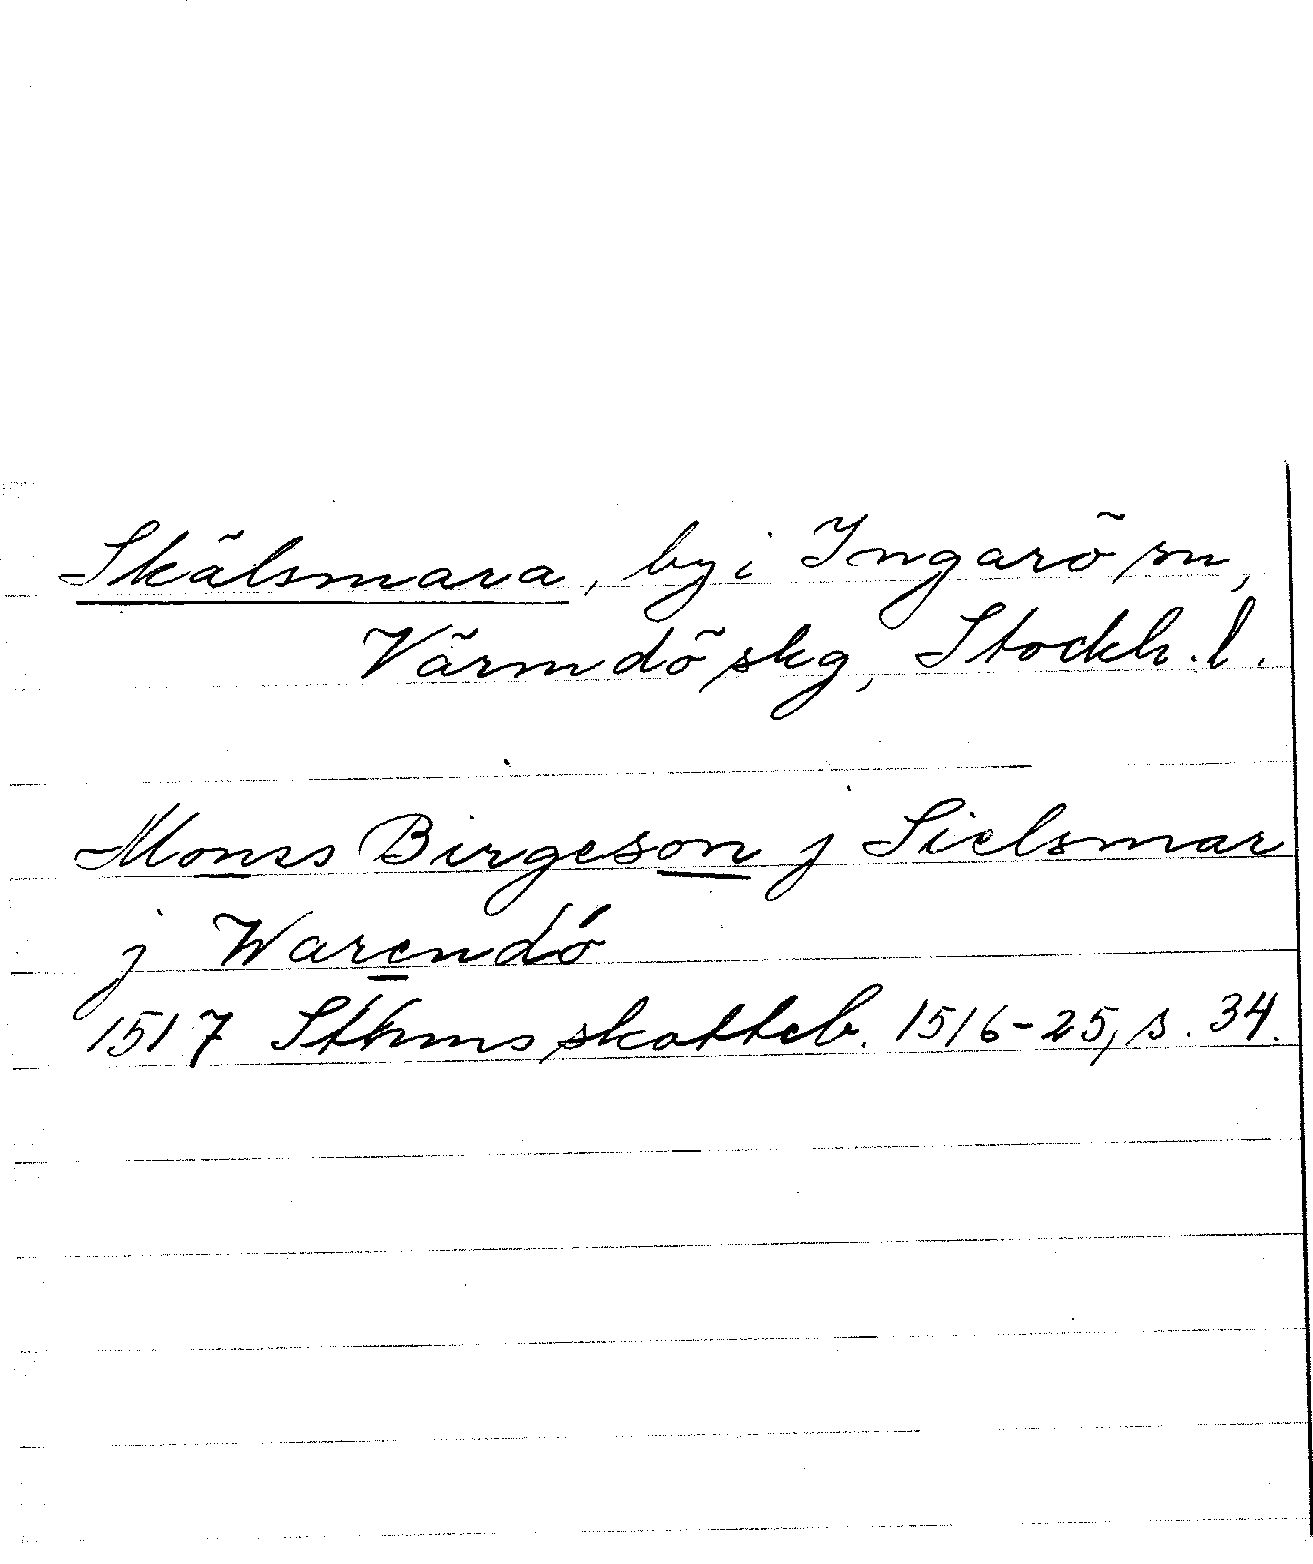 Skälsmara, by i Ingarö sn,
Värmdö skg, Stockh. l.
Monss Birgeson j Sielsmar
j Warendó
1517 Sthms skotteb. 1516-25, s. 34.